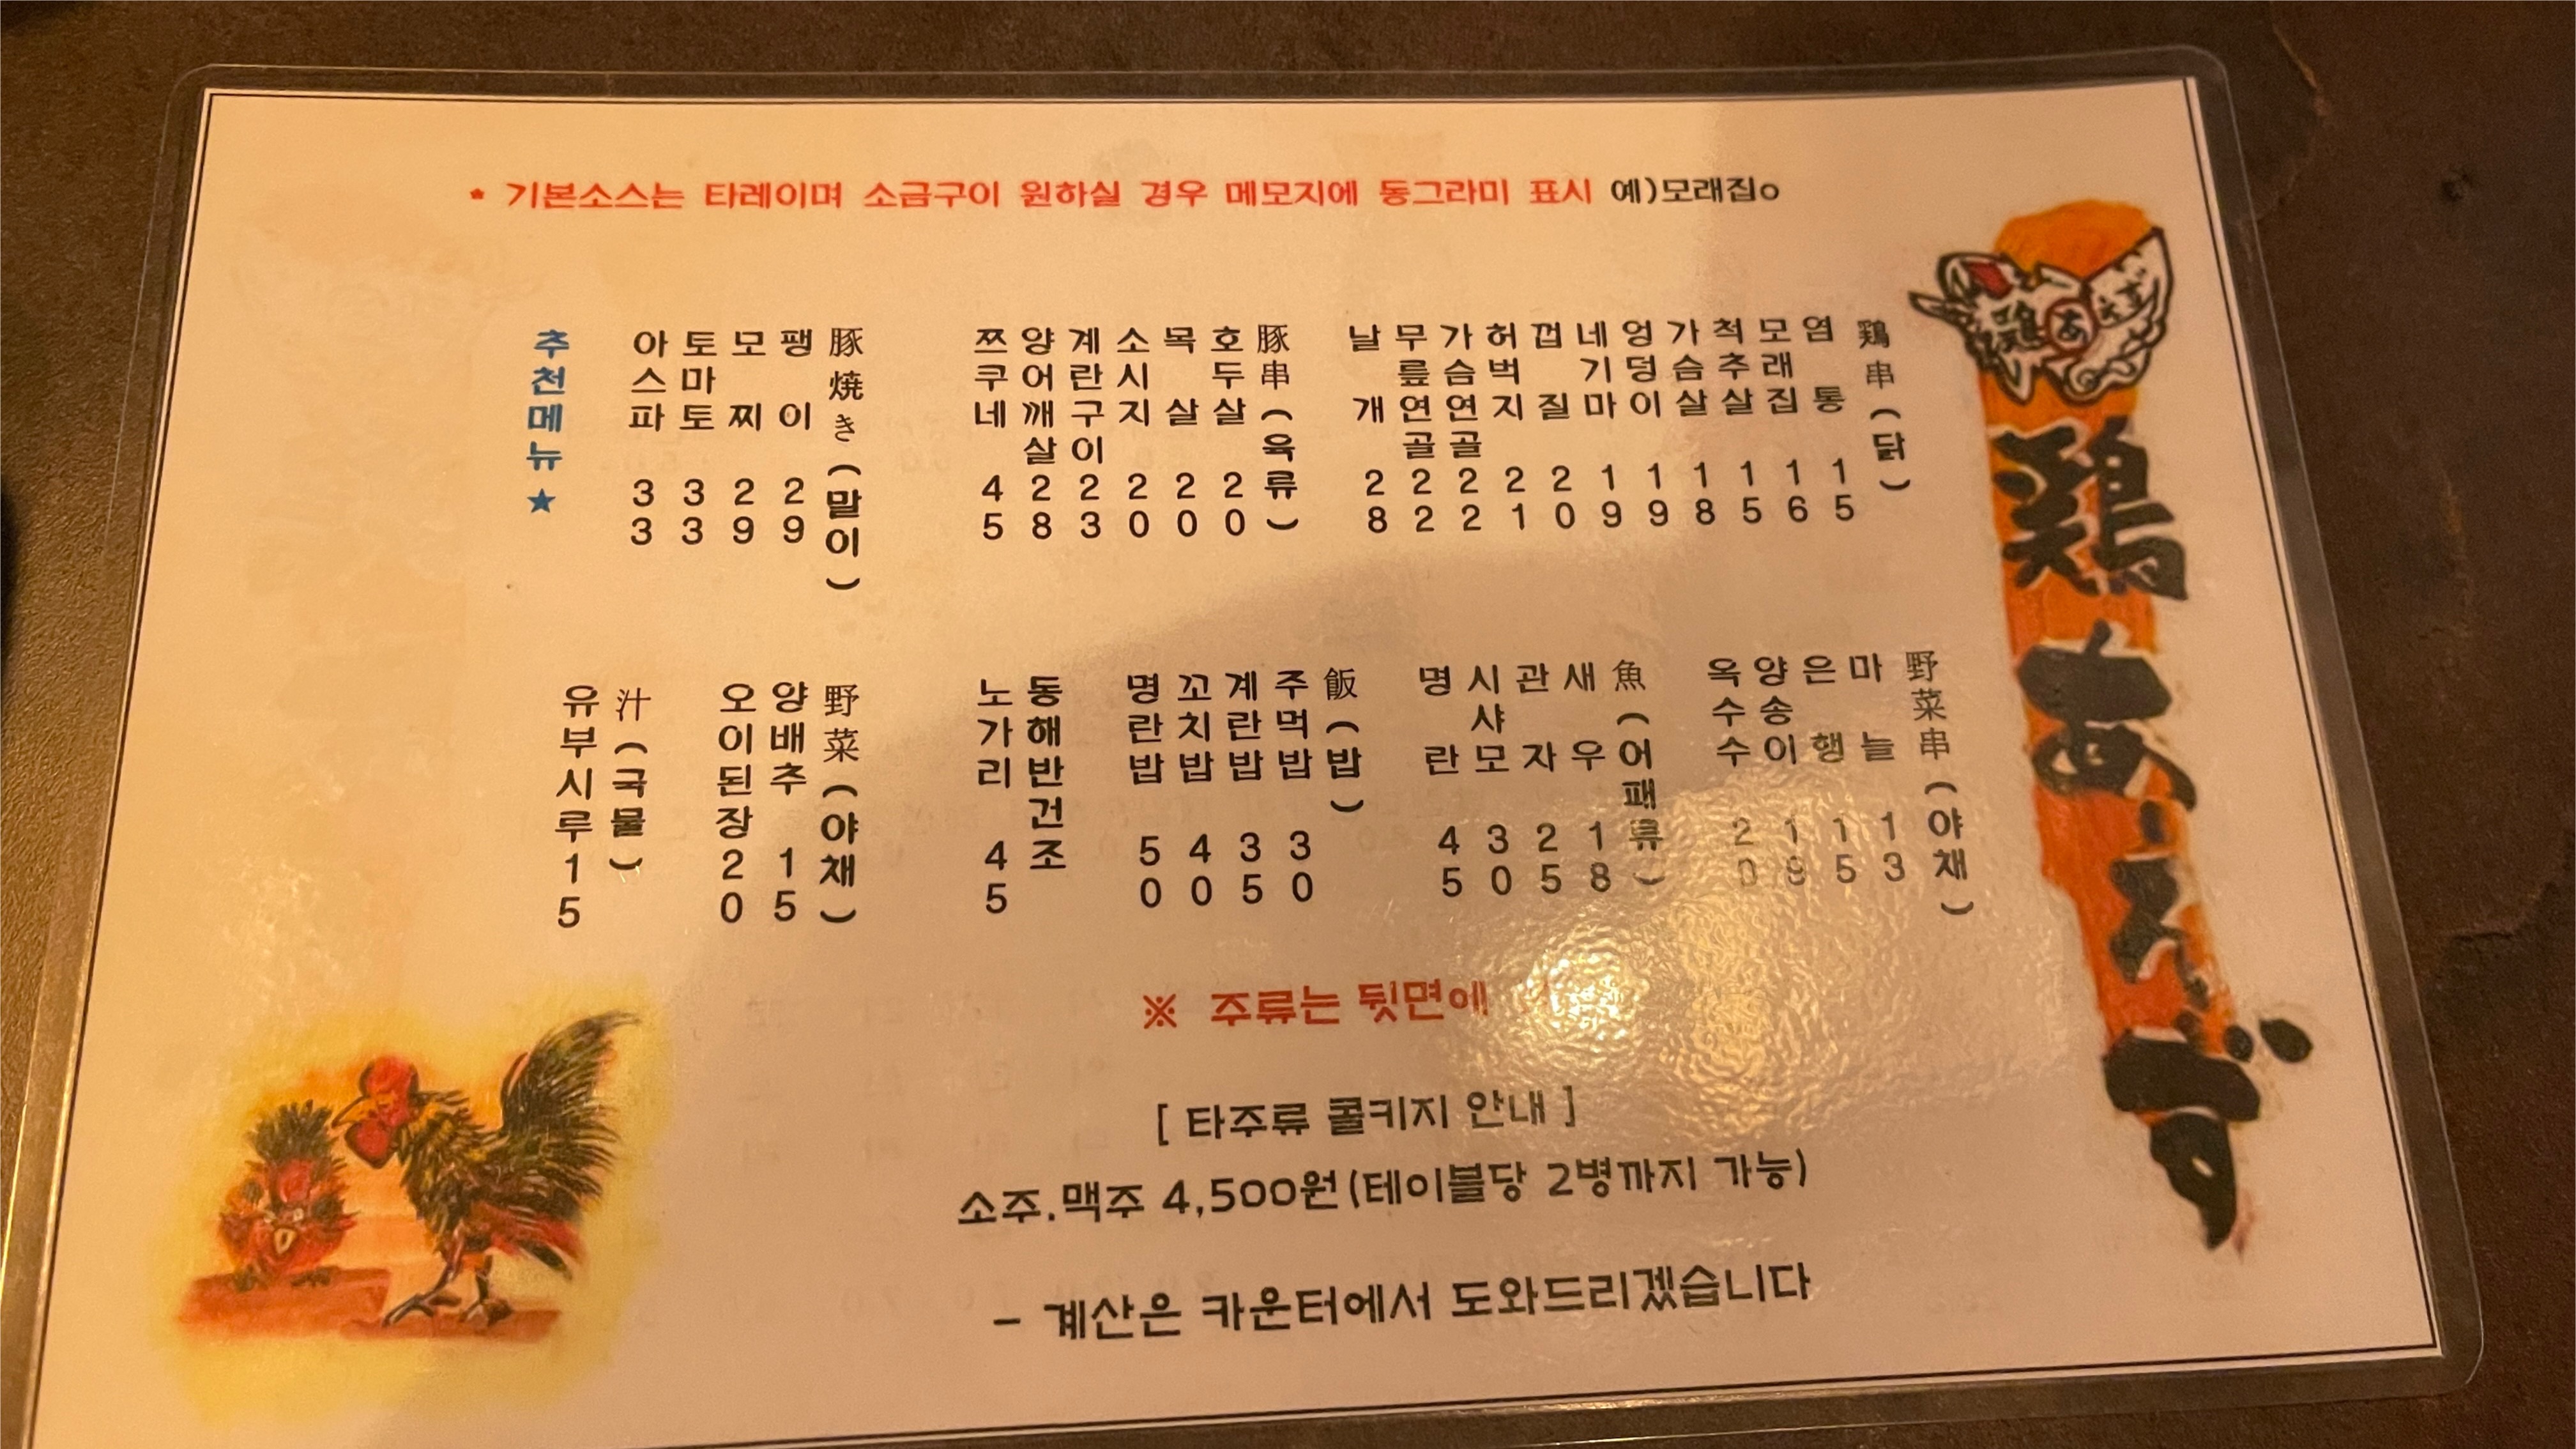 * 기본소스는 타레이며 소금구이 원하실 경우 메모지에 동그라미 표시 예)모래집o
鶏あえず
鶏串(닭)
염통 15
모래집 16
척추살 15
가슴살 18
엉덩이 19
네기마 19
껍질 20
허벅지 21
가슴연골 22
무릎연골 22
날개 28
豚串(육류)
호두살 20
목살 20
소시지 20
계란구이 23
양어깨살 28
쯔쿠네 45
豚焼き(말이)
팽이 29
모찌 29
토마토 33
아스파 33
추천메뉴★
野菜串(야채)
마늘 13
은행 15
양송이 19
옥수수 20
魚(어패류)
새우 18
관자 25
시샤모 30
명란 45
飯(밥)
주먹밥 30
계란밥 35
꼬치밥 40
명란밥 50
동해반건조
노가리 45
野菜(야채)
양배추 15
오이된장 20
汁(국물)
유부시루 15
※ 주류는 뒷면에
[ 타주류 콜키지 안내 ]
소주.맥주 4,500원(테이블당 2병까지 가능)
- 계산은 카운터에서 도와드리겠습니다